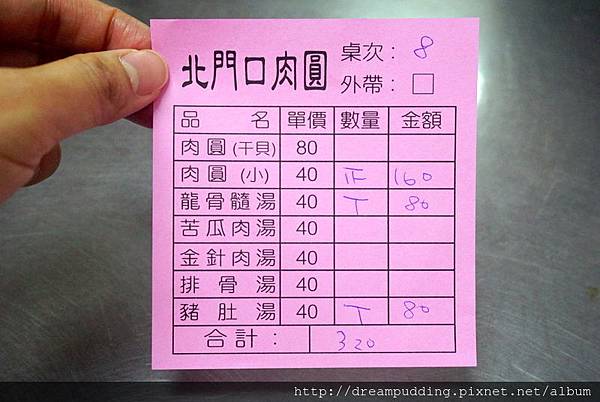 北門口肉圓
桌次: 8
外帶: □
品名 單價 數量 金額
肉圓(干貝) 80
肉圓(小) 40 正 160
龍骨髓湯 40 丅 80
苦瓜肉湯 40
金針肉湯 40
排骨湯 40
豬肚湯 40 丅 80
合計: 320
http://dreampudding.pixnet.net/album